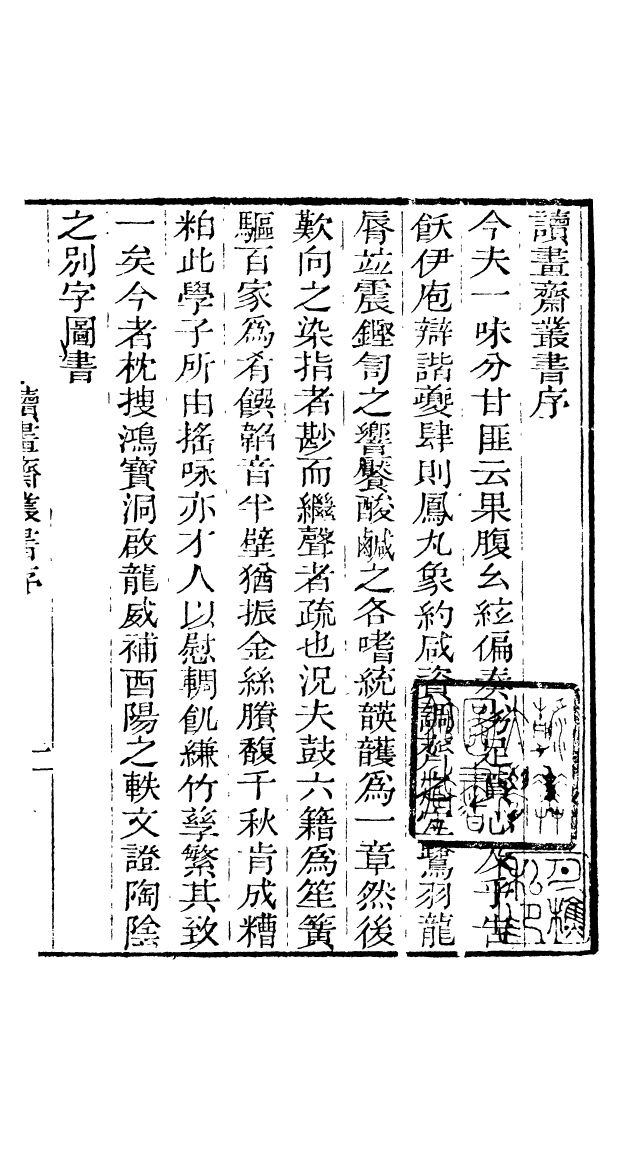 讀畫齋叢書序
今夫一味分甘匪云果腹幺絃偏奏
飫伊庖辯諧夔肆則鳳丸象約咸資調鷺羽龍
脣竝震鏗訇之響饜酸鹹之各嗜統韺頀為一章然後
歎向之染指者尠而繼聲者疏也況夫鼓六籍為笙簧
驅百家為肴饌韜音半壁猶振金絲賸馥千秋肯成糟
粕此學子所由搖咏亦才人以慰輖飢縑竹孳繁其致
一矣今者枕搜鴻寶洞啟龍威補酉陽之軼文證陶陰
之別字圖書
讀畫齋叢書序
一